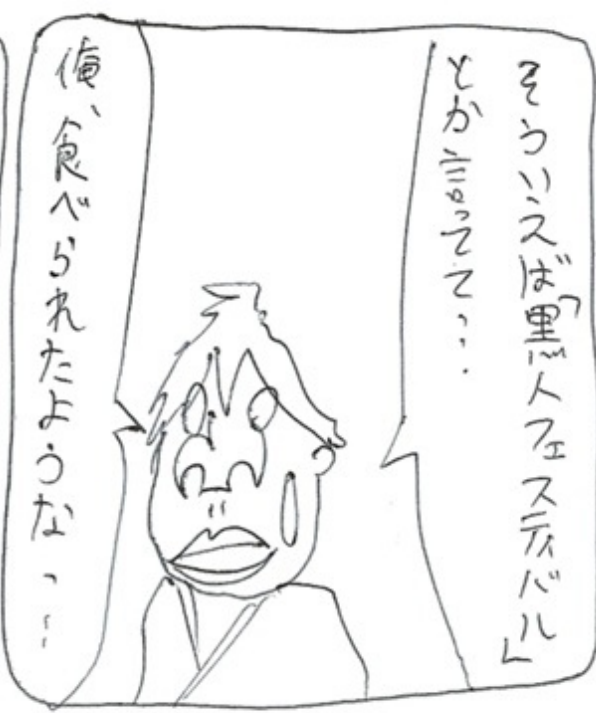 そういえば「黒人フェスティバル」
とか言ってて…
俺、食べられたようなっ…